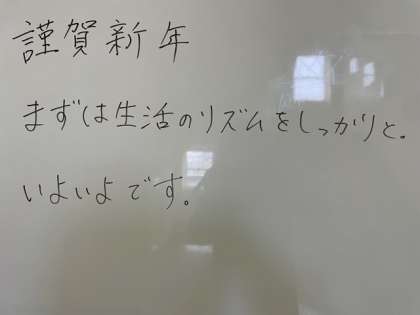 謹賀新年
まずは生活のリズムをしっかりと。
いよいよです。